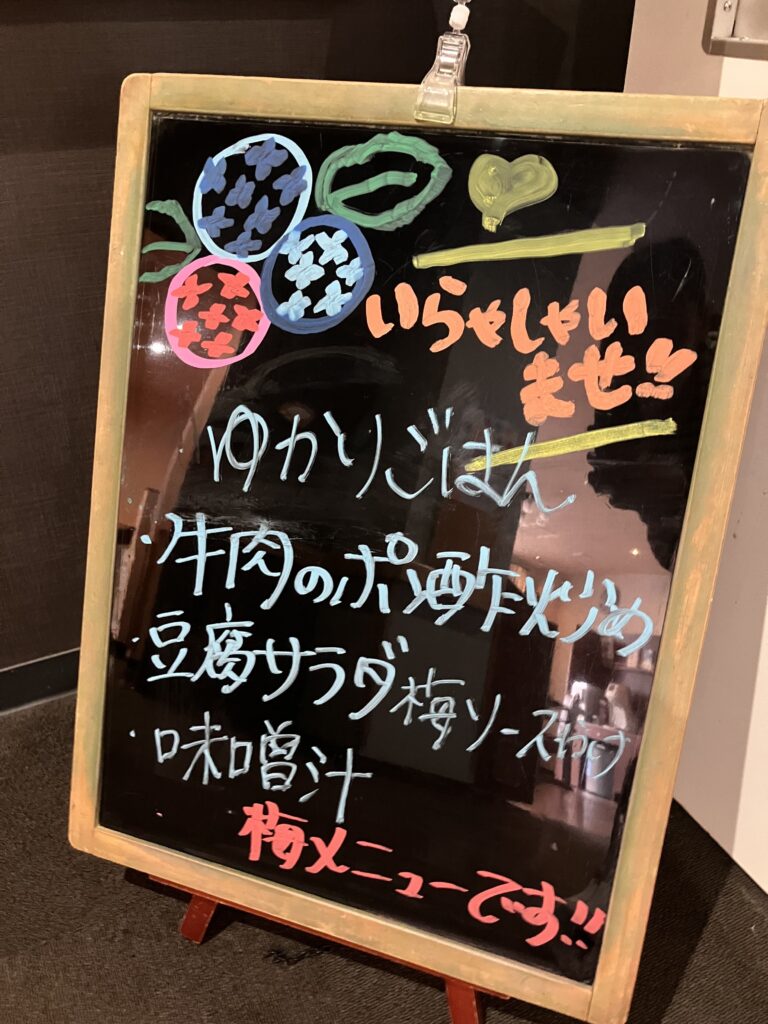 いらゃしゃい
ませ!!
ゆかりごはん
・牛肉のポン酢炒め
・豆腐サラダ梅ソースかけ
・味噌汁
梅メニューです!!